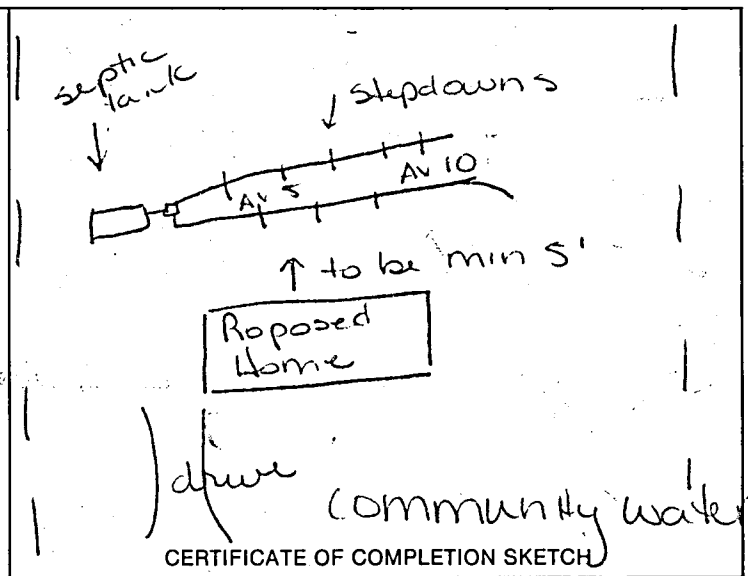 septic
tank
stepdowns
Av 5
Av 10
to be min 5'
Roposed
Home
drive
Community water
CERTIFICATE OF COMPLETION SKETCH